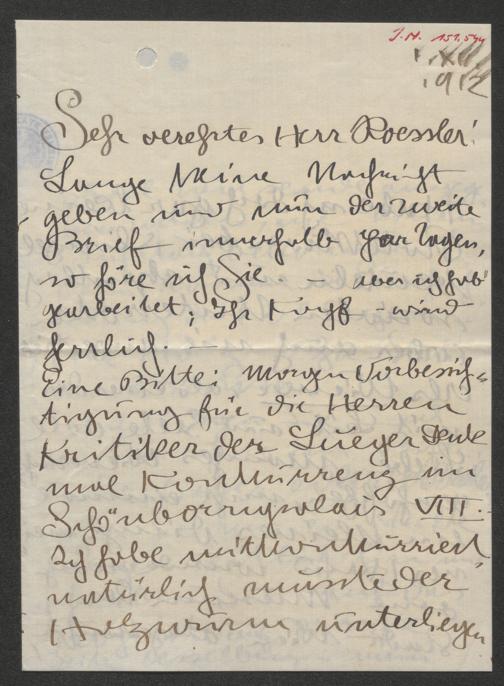 J.N. 151.544
1912
Sehr verehrter Herr Roessler!
Lange keine Nachricht
geben und nun der zweite
Brief innerhalb paar Tagen,
so höre ich Sie – aber ich hab
gearbeitet; Ihr Kopf wird
herrlich. –
Eine Bitte: Morgen Vorbesich=
tigung für die Herren
Kritiker der Lueger Denk
mal Konkurrenz im
Schönbornpalais VIII.
Ich habe mitkonkurriert,
natürlich musste der
Holzwurm unterliegen